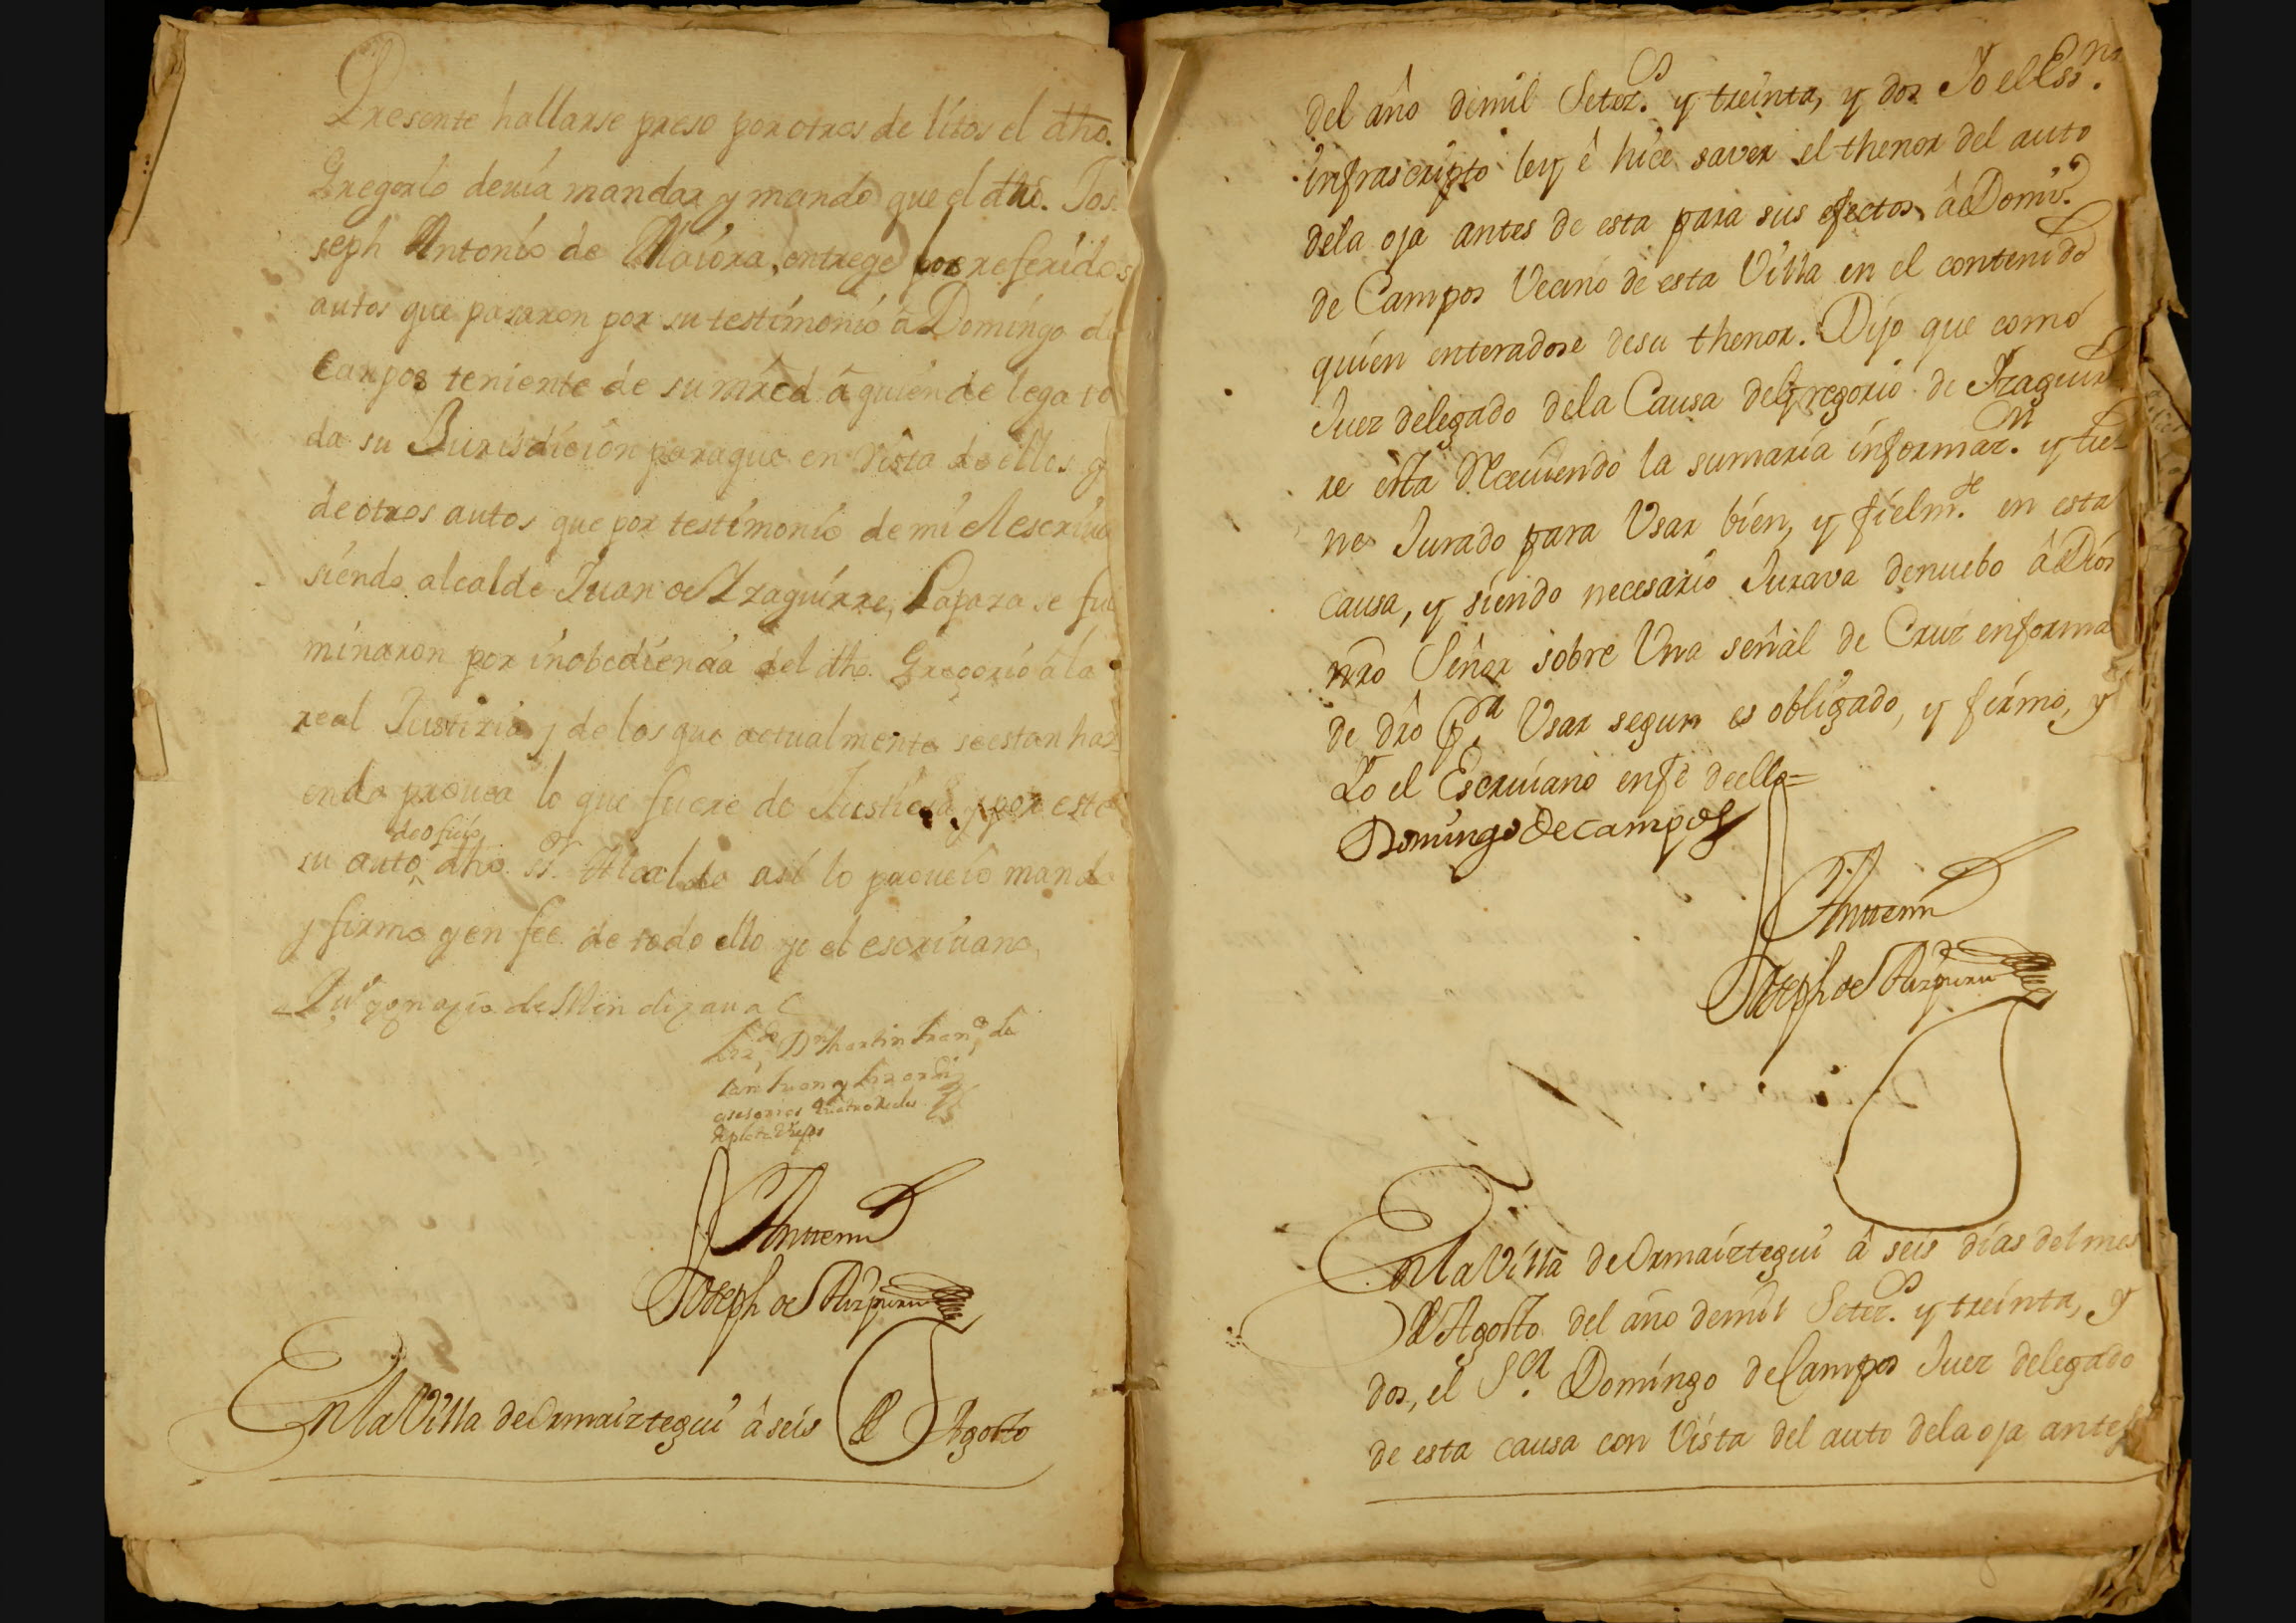 Presente hallarse preso por otros delitos el dho.
Gregorio devia mandar y mando que el dho. Jos
seph Antonio de Maiora, entrege los referidos
autos que pasaron por su testimonio â Domingo de
Campos teniente de su mrced â quien delega to
da su Jurisdicion para que en vista de ellos y
de otros autos que por testimonio de mi el escriuo
siendo alcalde Juan de Yzaguirre, Lapaza se ful
minaron por inobediencia del dho. Gregorio â la
real Justizia y de los que actualmente se estan haz
iendo prouea lo que fuere de Justicia y por este
su auto de ofiiο dho. sr. Alcalde asi lo proueiô mando
y firmo y en fee de todo ello yo el escriuano
Juo ygnazio de Mendizaual
Lizdo Dn Martin Franco de
San Juan y Lizardi
asesorias quatro Reales
de plata
Antemi
Joseph de Aizpuru
En la Villa de Ormaiztegui â seis de Agosto
del año de mil Setezs. y treinta, y dos Yo el Essno.
infrascripto ley ê hice saver el thenor del auto
dela oja antes de esta para sus efectos, â Domo.
de Campos Vecino de esta Villa en el contenido
quien enteradose desu thenor. Dijo que como
Juez delegado dela Causa de Gregorio de Yzaguir
re esta Reciviendo la sumaria informazn. y tie-
ne Jurado para Usar bien, y fielmte. en esta
causa, y siendo necesario Jurava denuebo â Dios
nro Señor sobre Una señal de Cruz enforma
de dro pa. Usar segun es obligado, y firmo, y
Yo el Escriuano enfe deello=
Domingo de campos
Antemi
Joseph de Aizpuru
En la Villa de Ormaiztegui â seis dias del mes
de Agosto del año demil Setezs. y treinta, y
dos, el Sor. Domingo de Campos Juez delegado
de esta causa con Vista del auto dela oja antes